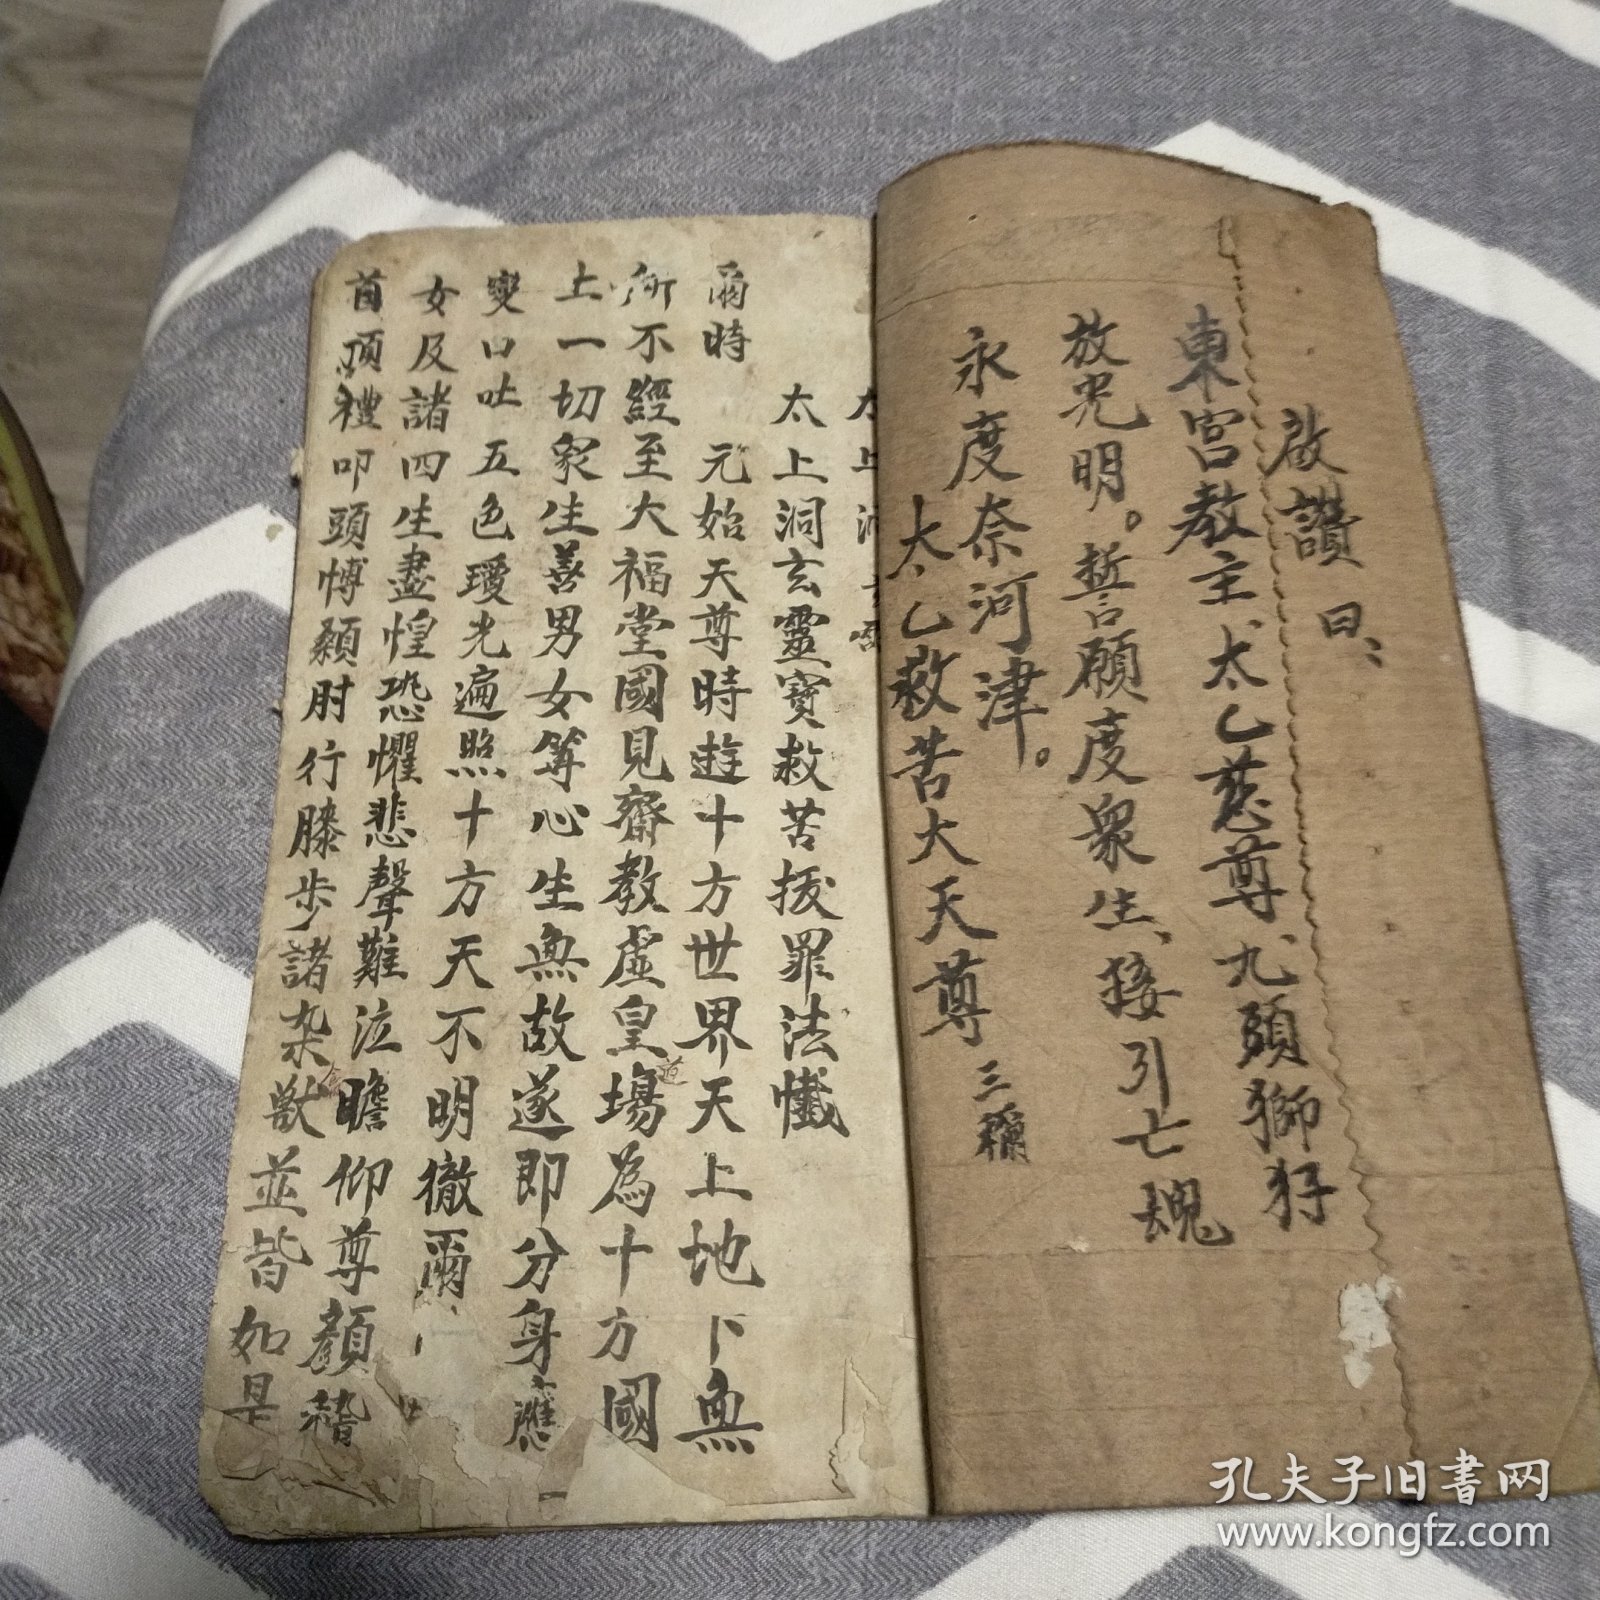 啟讚曰、
東宮教主、太乙慈尊、九頭獅犴
放光明。誓言願度衆生、接引亡魂
永度奈河津。
太乙救苦大天尊三稱
太上洞玄靈寶救苦拔罪法懺
爾時 元始天尊時遊十方世界天上地下無
所不經至大福堂國見齋教虛皇道場為十方國
上一切衆生善男女等心生無故遂即分身應
變口吐五色瓊光遍照十方天不明徹爾
女及諸四生盡惶恐懼悲聲難泣瞻仰尊顏稽
首頂禮叩頭愽顙肘行膝步諸杂獸並皆如是
孔夫子旧書网
www.kongfz.com